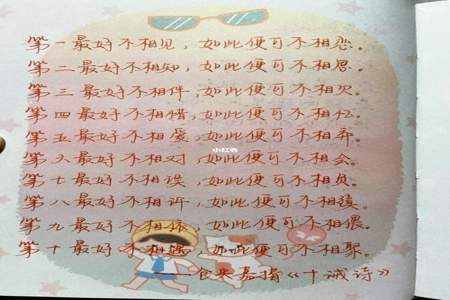 第一最好不相见，如此便可不相恋。
第二最好不相知，如此便可不相思。
第三最好不相伴，如此便可不相欠。
第四最好不相惜，如此便可不相忆。
第五最好不相爱，如此便可不相弃。
第六最好不相对，如此便可不相会。
第七最好不相误，如此便可不相负。
第八最好不相许，如此便可不相续。
第九最好不相依，如此便可不相偎。
第十最好不相遇，如此便可不相聚。
仓央嘉措《十诫诗》
小红书